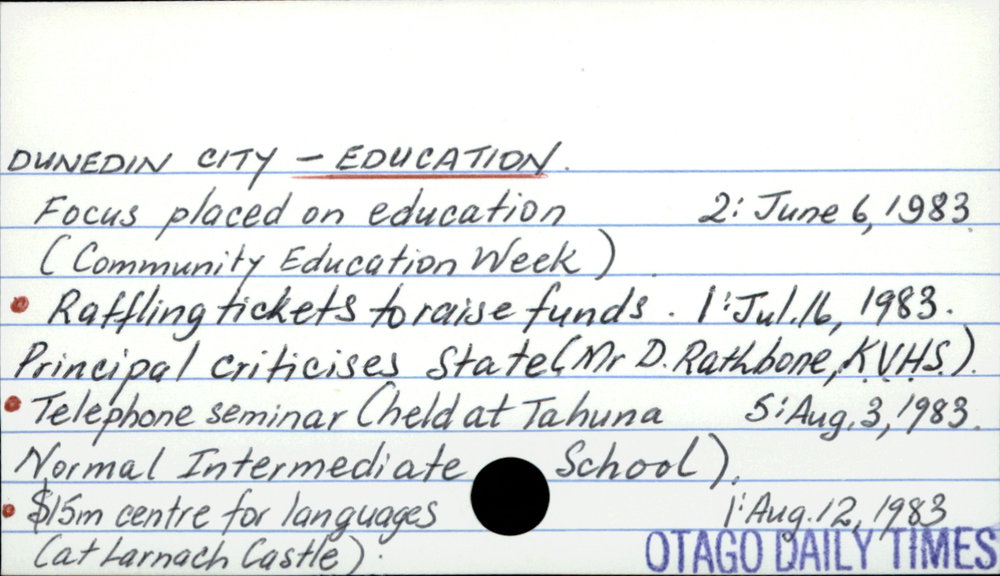 DUNEDIN CITY – EDUCATION.
Focus placed on education 2: June 6, 1983.
(Community Education Week).
• Raffling tickets to raise funds. 1: Jul. 16, 1983.
Principal criticises State (Mr D. Rathbone, K.V.H.S.).
• Telephone seminar (held at Tahuna 5: Aug. 3, 1983.
Normal Intermediate School).
• $15m centre for languages 1: Aug. 12, 1983
(at Larnach Castle).
OTAGO DAILY TIMES